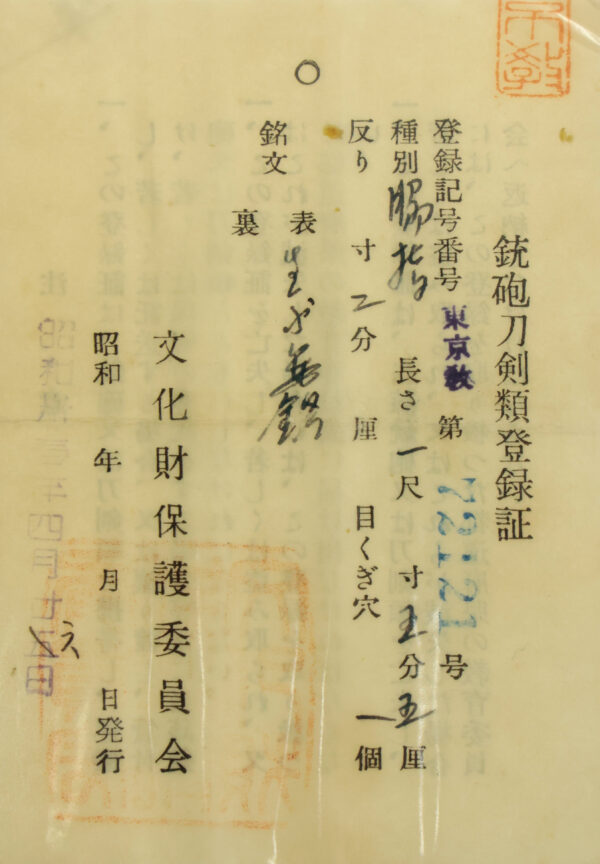 銃砲刀剣類登録証
登録記号番号 東京教 第 72121 号
種別 脇指 長さ 一尺 寸五分五厘
反り 寸二分 厘 目くぎ穴 一個
銘文 表 生ぶ無銘
裏
文化財保護委員会
昭和 年 月 日発行